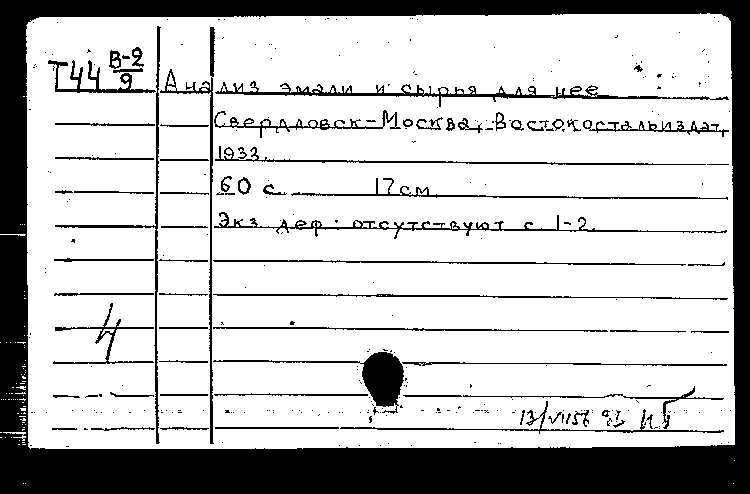 Т44 В-2/9 Анализ эмали и сырья для нее
Свердловск-Москва, Востокостальиздат,
1933.
60 с. 17см
Экз. деф: отсутствуют с. 1-2.
Ч
13/VII56